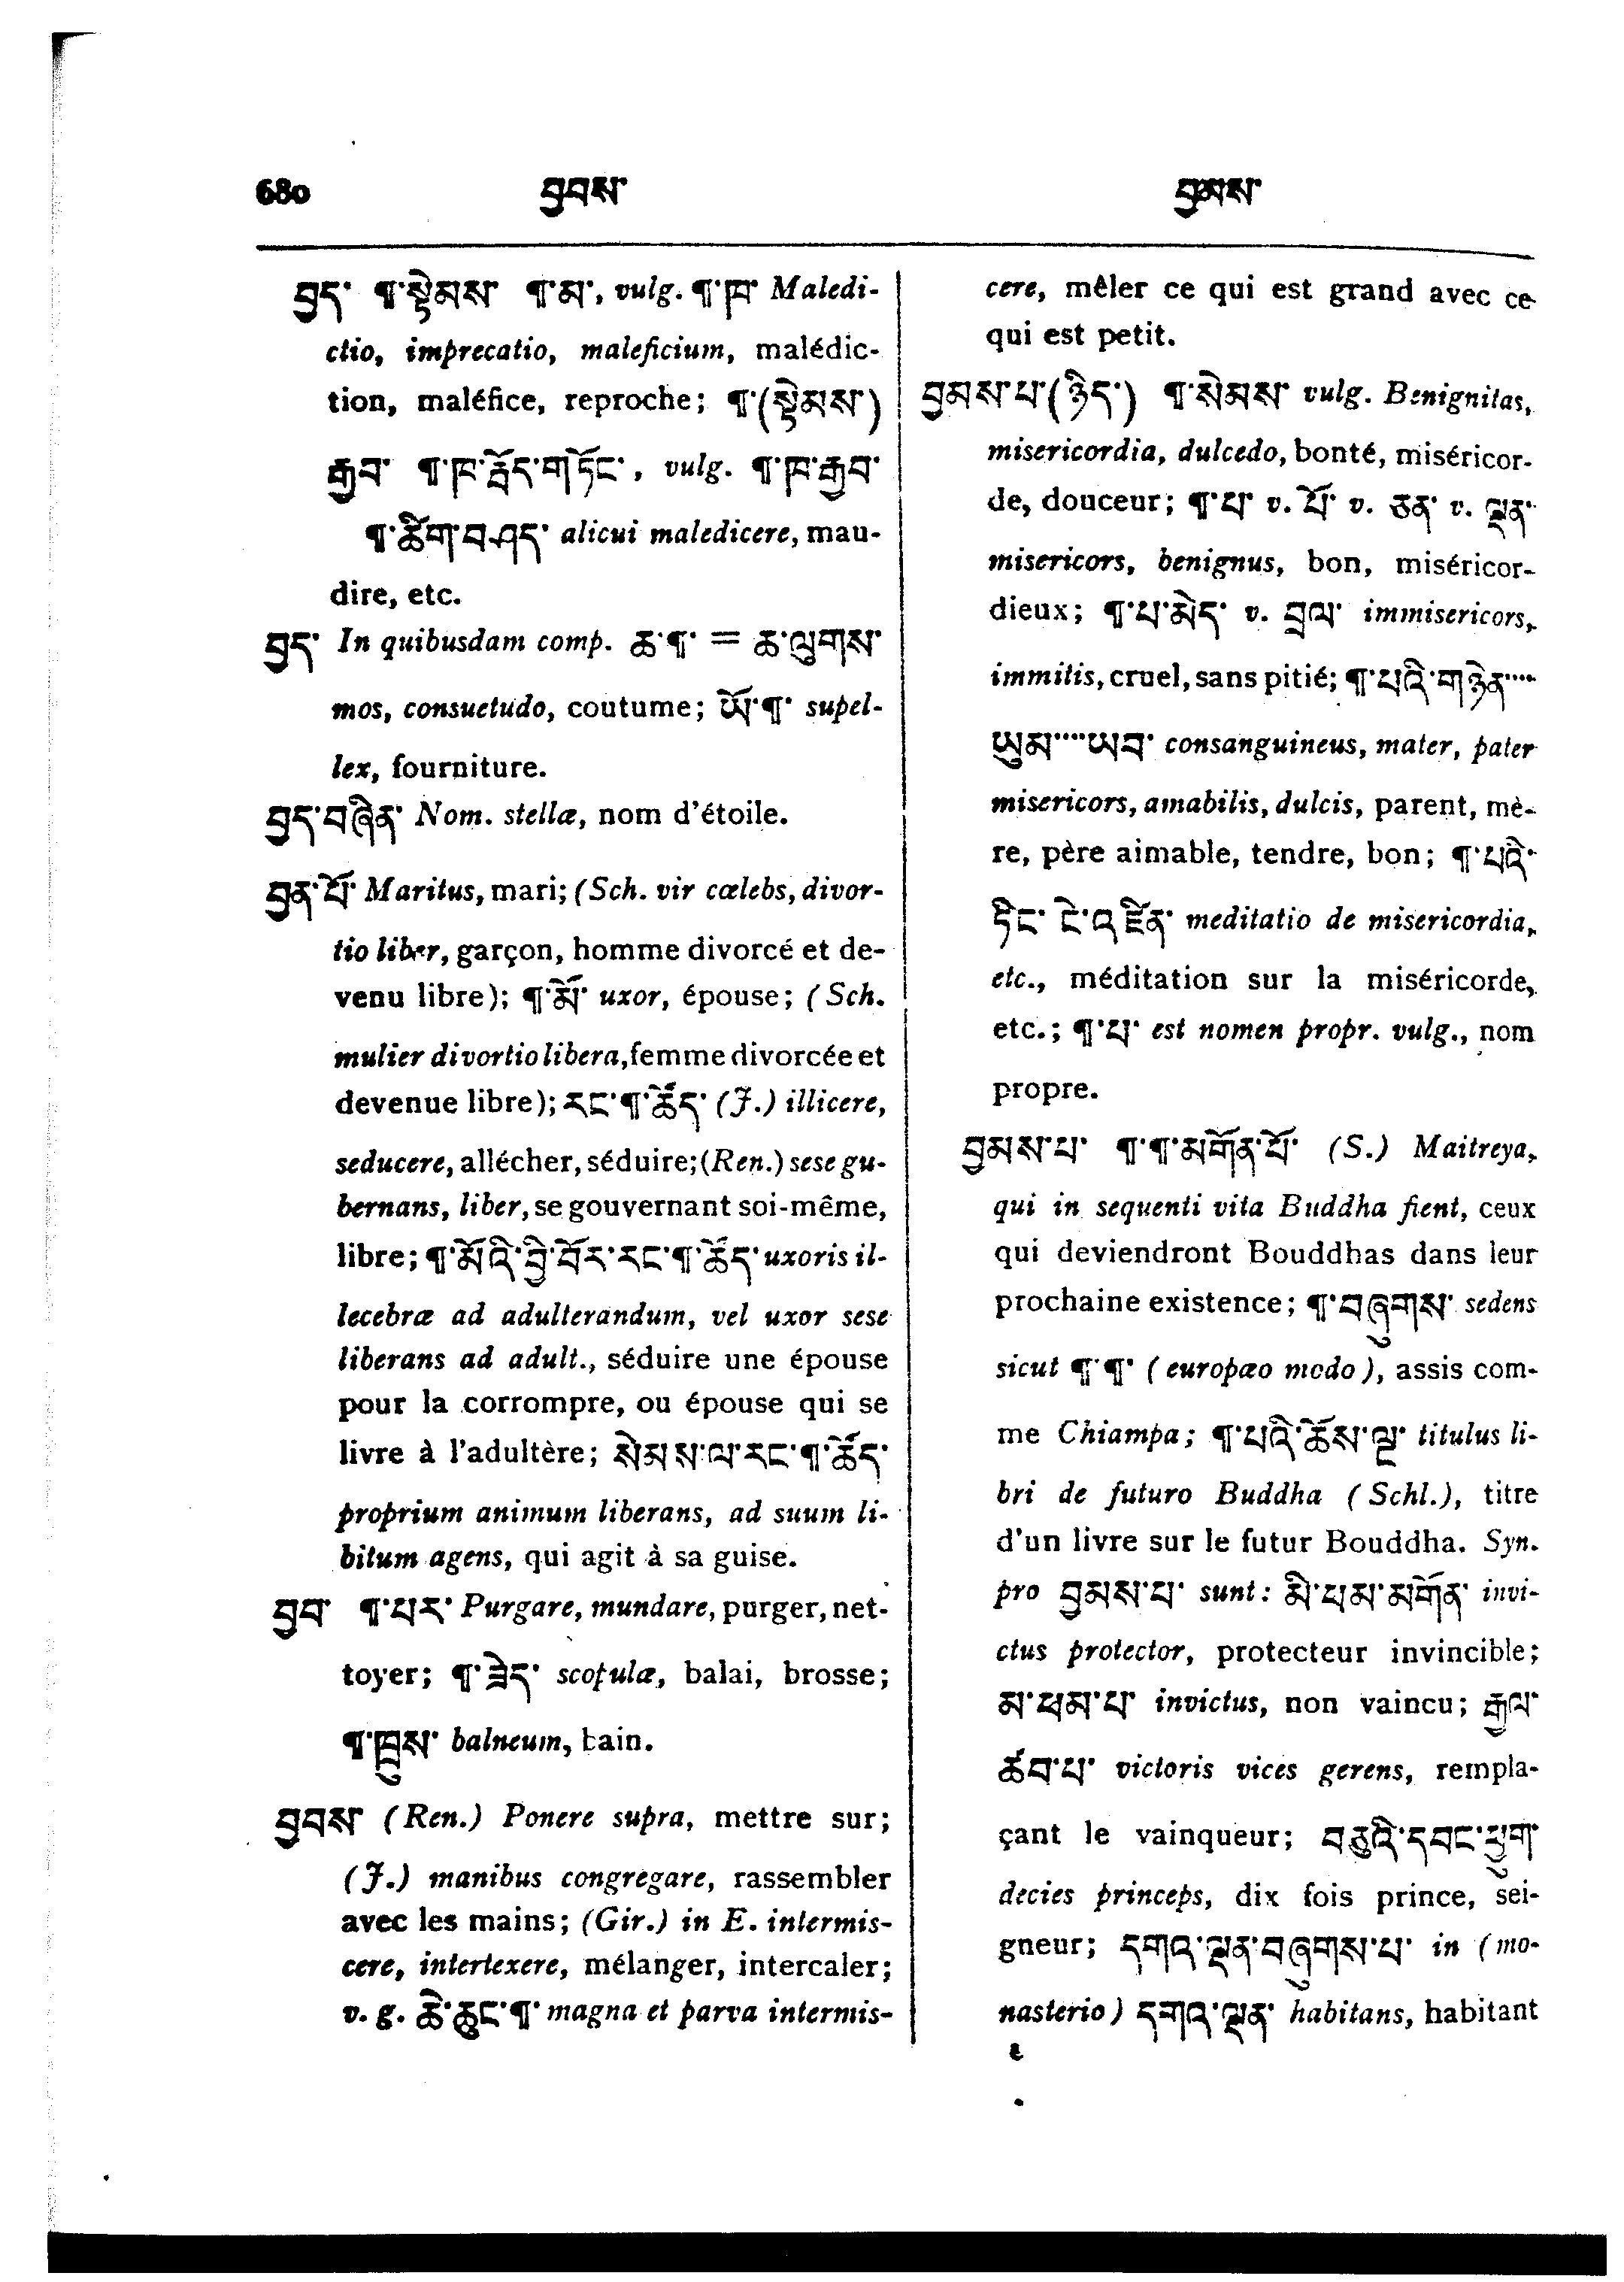 680 བྱབས་ བྱམས་
བྱད་ ¶་སྟེམས་ ¶་མ་, vulg. ¶་ཁ་ Maledi-
ctio, imprecatio, maleficium, malédic-
tion, maléfice, reproche; ¶་(སྟེམས་)
རྒྱབ་ ¶་ཁ་རྦོད་གཏོང་, vulg. ¶་ཁ་རྒྱབ་
¶་ཚིག་བཤད་ alicui maledicere, mau-
dire, etc.
བྱད་ In quibusdam comp. ཆ་¶་ = ཆ་ལུགས་
mos, consuetudo, coutume; ཡོ་¶་ supel-
lex, fourniture.
བྱད་བཞིན་ Nom. stellæ, nom d'étoile.
བྱན་པོ་ Maritus, mari; (Sch. vir cœlebs, divor-
tio liber, garçon, homme divorcé et de-
venu libre); ¶་མོ་ uxor, épouse; (Sch.
mulier divortio libera, femme divorcée et
devenue libre); རང་¶་ཚོད་ (J.) illicere,
seducere, allécher, séduire; (Ren.) sese gu-
bernans, liber, se gouvernant soi-même,
libre; ¶་མོའི་བྱི་བོར་རང་¶་ཚོད་ uxoris il-
lecebræ ad adulterandum, vel uxor sese
liberans ad adult., séduire une épouse
pour la corrompre, ou épouse qui se
livre à l'adultère; སེམས་ལ་རང་¶་ཚོད་
proprium animum liberans, ad suum li-
bitum agens, qui agit à sa guise.
བྱབ་ ¶་པར་ Purgare, mundare, purger, net-
toyer; ¶་ཟེད་ scopulæ, balai, brosse;
¶་ཁྲུས་ balneum, bain.
བྱབས་ (Ren.) Ponere supra, mettre sur;
(J.) manibus congregare, rassembler
avec les mains; (Gir.) in E. intermis-
cere, intertexere, mélanger, intercaler;
v. g. ཆེ་ཆུང་¶་ magna et parva intermis-
cere, mêler ce qui est grand avec ce
qui est petit.
བྱམས་པ་(ཉིད་) ¶་སེམས་ vulg. Benignitas,
misericordia, dulcedo, bonté, miséricor-
de, douceur; ¶་པ་ v. པོ་ v. ཅན་ v. ལྡན་
misericors, benignus, bon, miséricor-
dieux; ¶་པ་མེད་ v. བྲལ་ immisericors,
immitis, cruel, sans pitié; ¶་པའི་གཉེན་····
ཡུམ་····ཡབ་ consanguineus, mater, pater
misericors, amabilis, dulcis, parent, mè-
re, père aimable, tendre, bon; ¶་པའི་
ཏིང་ངེ་འཛིན་ meditatio de misericordia,
etc., méditation sur la miséricorde,
etc.; ¶་པ་ est nomen propr. vulg., nom
propre.
བྱམས་པ་ ¶་¶་མགོན་པོ་ (S.) Maitreya,
qui in sequenti vita Buddha fient, ceux
qui deviendront Bouddhas dans leur
prochaine existence; ¶་བཞུགས་ sedens
sicut ¶་¶་ (europæo modo), assis com-
me Chiampa; ¶་པའི་ཆོས་ལྔ་ titulus li-
bri de futuro Buddha (Schl.), titre
d'un livre sur le futur Bouddha. Syn.
pro བྱམས་པ་ sunt: མི་ཕམ་མགོན་ invi-
ctus protector, protecteur invincible;
མ་ཕམ་པ་ invictus, non vaincu; རྒྱལ་
ཚབ་པ་ victoris vices gerens, rempla-
çant le vainqueur; བཅུའི་དབང་ཕྱུག་
decies princeps, dix fois prince, sei-
gneur; དགའ་ལྡན་བཞུགས་པ་ in (mo-
nasterio) དགའ་ལྡན་ habitans, habitant